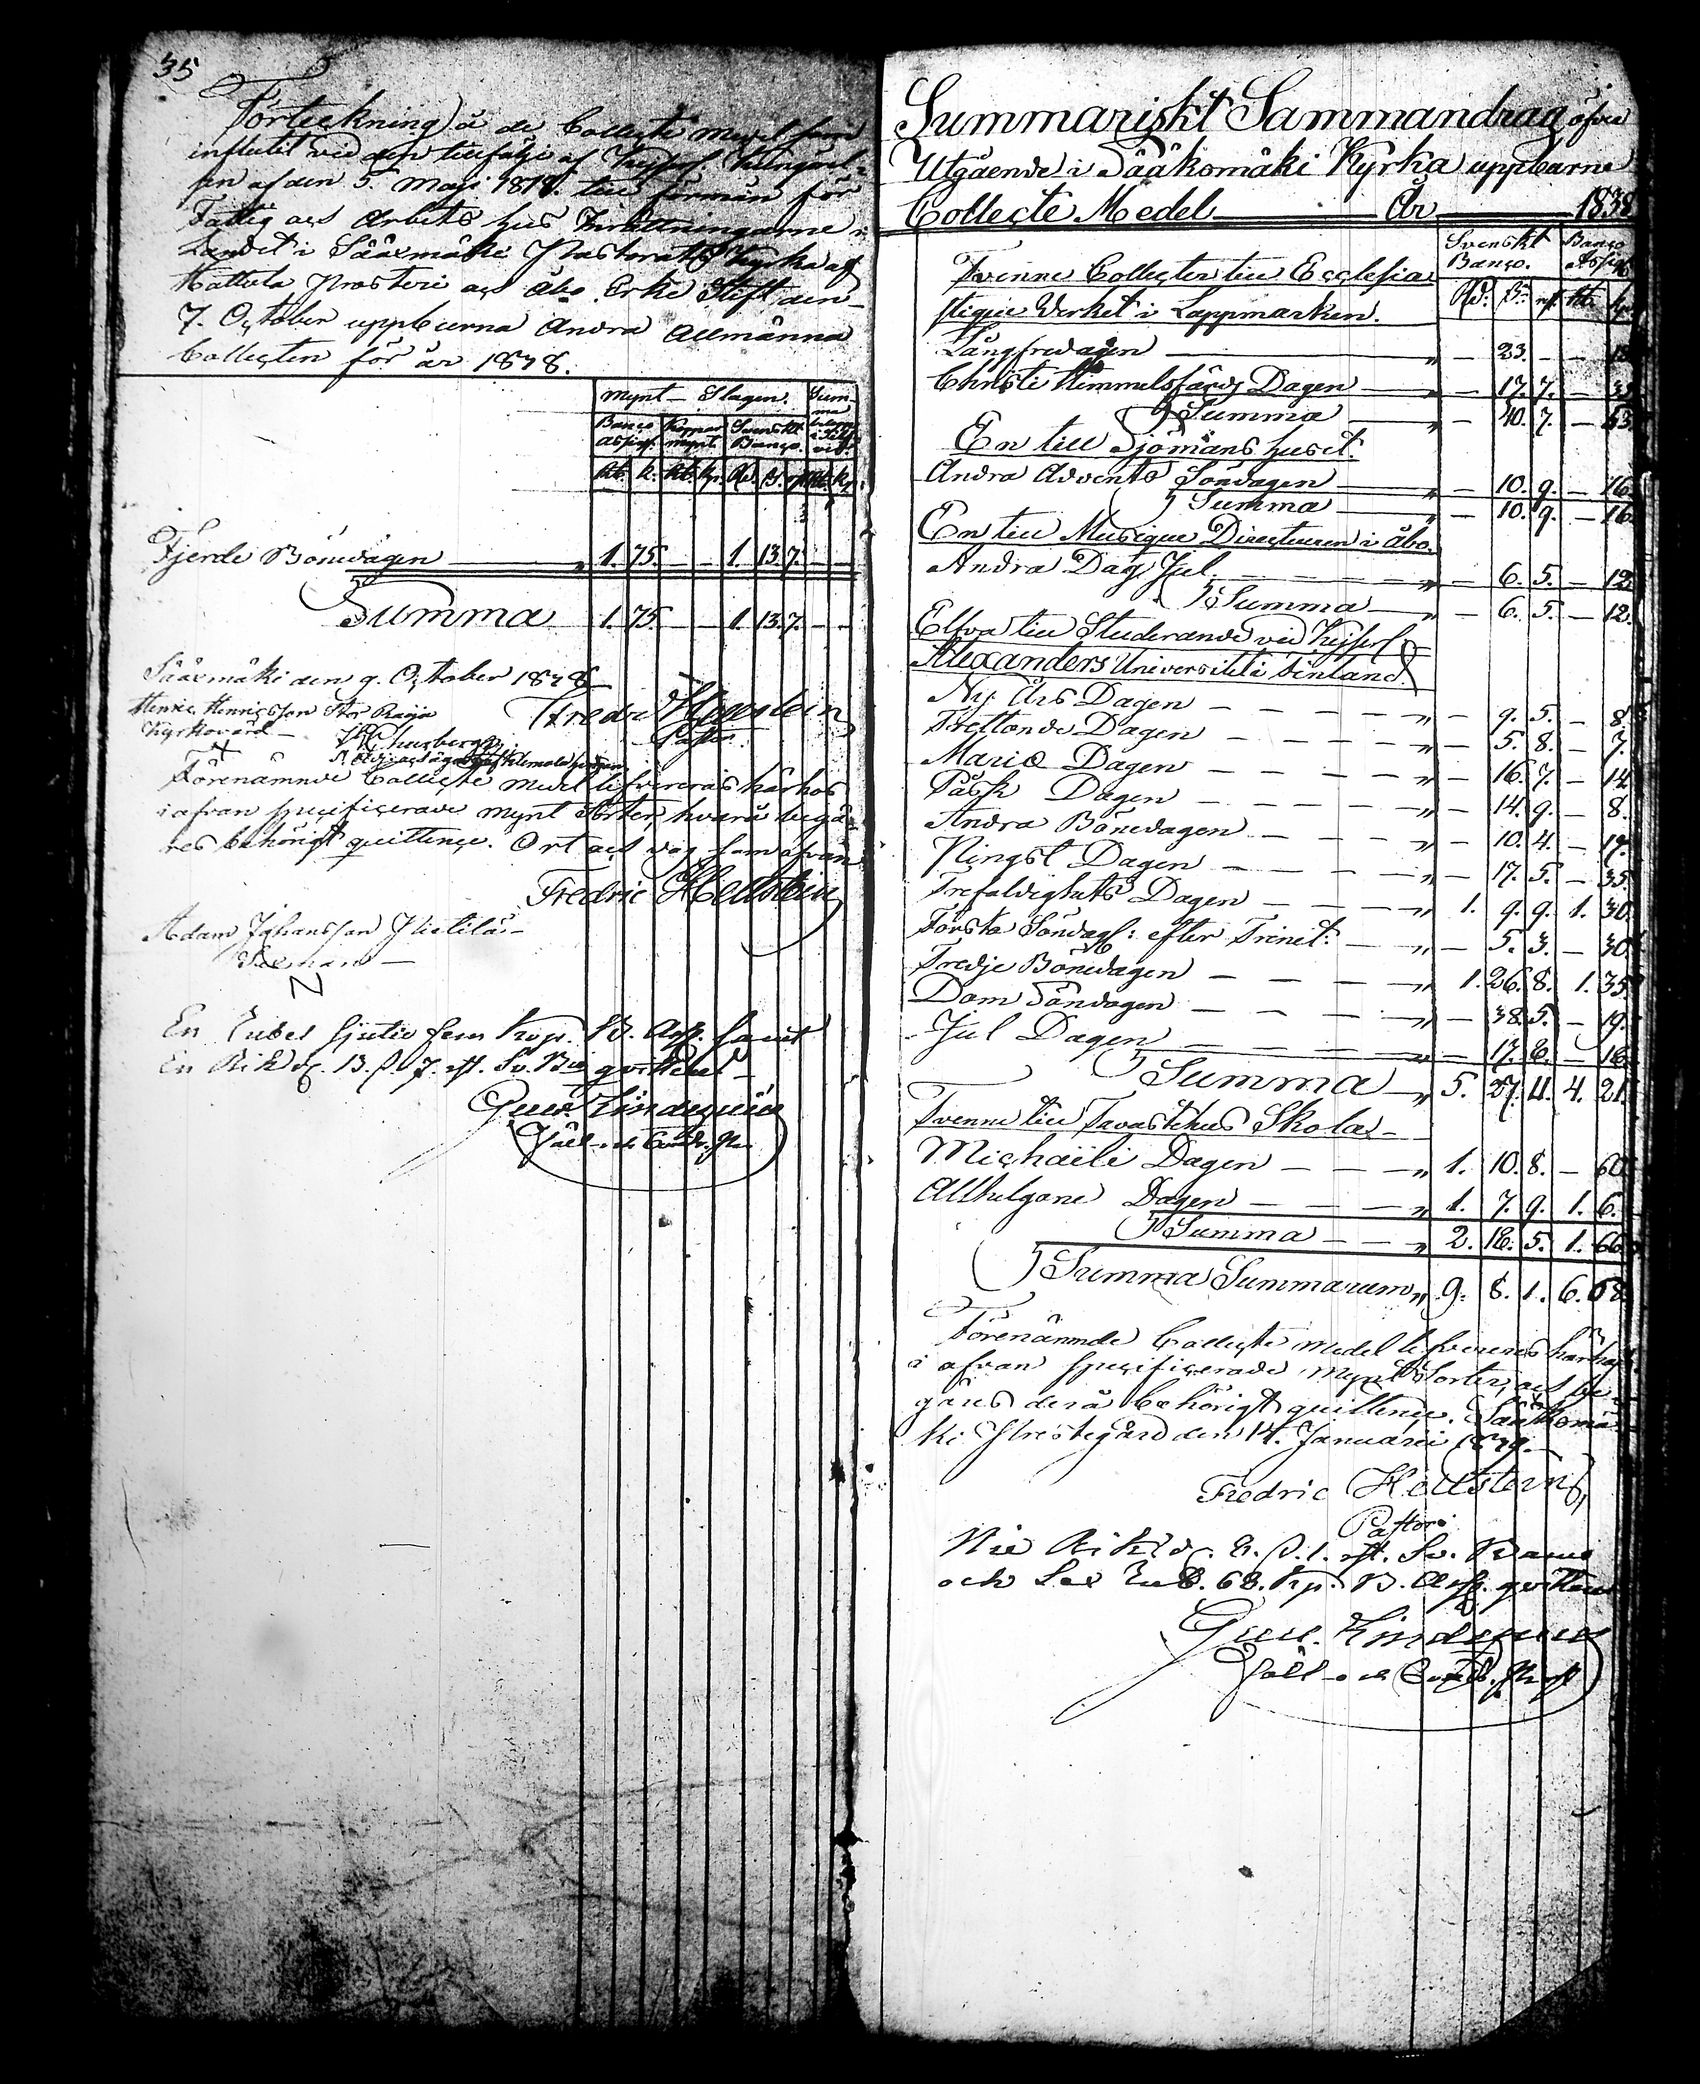 35
Förteckning å de Collecte Medel som
influtit vid den tillfölje af Keyserl. Kungörel-
sen af den 5. Maji 1818. till förmån för
Fattig och Arbets hus Inrättningarne i
Landet i Sääxmäki Pastorats Kyrka af
Hattula Prosteri och Åbo Erke Stift den
7. October uppburna Andra Allmänna
Collecten för år 1838.
Mynt - Slagen. Sum-
ma
Banco Assign. Koppar mynt. Svenskt Banco.
Rb. k. Rb. kp. Rd. β. rst. Rb. kp.
Fjerde Bönedagen " 1. 75. - - 1. 13. 7. - -
Summa 1. 75. - - 1. 13. 7. - -
Sääxmäki den 9. October 1838
Henric Henricsson Stor Raija
Kyrkovärd
Fredric Hellstein
Pastor.
Förenämnde Collecte Medel lefvereras härhos
i ofvan specificerade Mynt Sorter, hvarå begä-
res behörigt quittence. Ort och dag som ofvan
Fredric Hellstein
Adam Johansson Pietilä
Sexman
En Rubel sjutio fem kop. B. Assg. samt
En Rikdr. 13. β 7. rst. Sv. Bco qvitteras
Gust. Lindequist
Häll och Cund. Pr.
Summariskt Sammandrag öfver
Utgående i Sääksmäki Kyrka uppburne
Collecte Medel År 1838
Svenskt Banco. Banco Assign.
Rd. β. rst. Rb. kp.
Tvenne Collecter till Ecclesia-
stique Verket i Lappmarken.
Långfredagen " - 23. - -
Christi Himmelsfärds Dagen " - 17. 7. -
Summa " - 40. 7. - 53
En till Sjömans huset.
Andra Advents Söndagen " - 10. 9. - 16.
Summa " - 10. 9. - 16.
En till Musique Directeuren i Åbo.
Andra Dag Jul " - 6. 5. - 12
Summa " - 6. 5. - 12.
Elfva till Studerande vid Keyserl.
Alexanders Universitet i Finland.
Ny Års Dagen " - 9. 5. - 8.
Trettonde Dagen " - 5. 8. - 7.
Mariæ Dagen " - 16. 7. - 14
Påsk Dagen " - 14. 9. - 8.
Andra Bönedagen " - 10. 4. - 19.
Pingst Dagen " - 17. 5. - 35.
Trefaldighets Dagen " 1. 9. 9. 1. 30.
Första Söndag: efter Trinit: " - 5. 3. - 30.
Tredje Bönedagen " 1. 26. 8. 1. 35.
Dom Söndagen " - 38. 5. - 19.
Jul Dagen " - 17. 6. - 16.
Summa " 5. 27. 11. 4. 21.
Tvenne till Tavastehus Skola
Michaëli Dagen " 1. 10. 8. - 60.
Allhelgone Dagen " 1. 7. 9. 1. 6.
Summa " 2. 18. 5. 1. 66.
Summa Summarum " 9. 8. 1. 6. 68.
Förenämnde Collecte Medel lefvereras härhos
i ofvan specificerade Mynt Sorter, och be-
gäres derå behörigt quittence. Sääksmä-
ki Prestegård den 14. Januarii 1839.
Fredric Hellstein
Pastor.
Nie Rikdr. 8. β. 1. rst. Sv. Banco
och Sex Rub. 68. kp. B. Assg. qvitteras
Gust. Lindequist
Häll och Cund. Prost